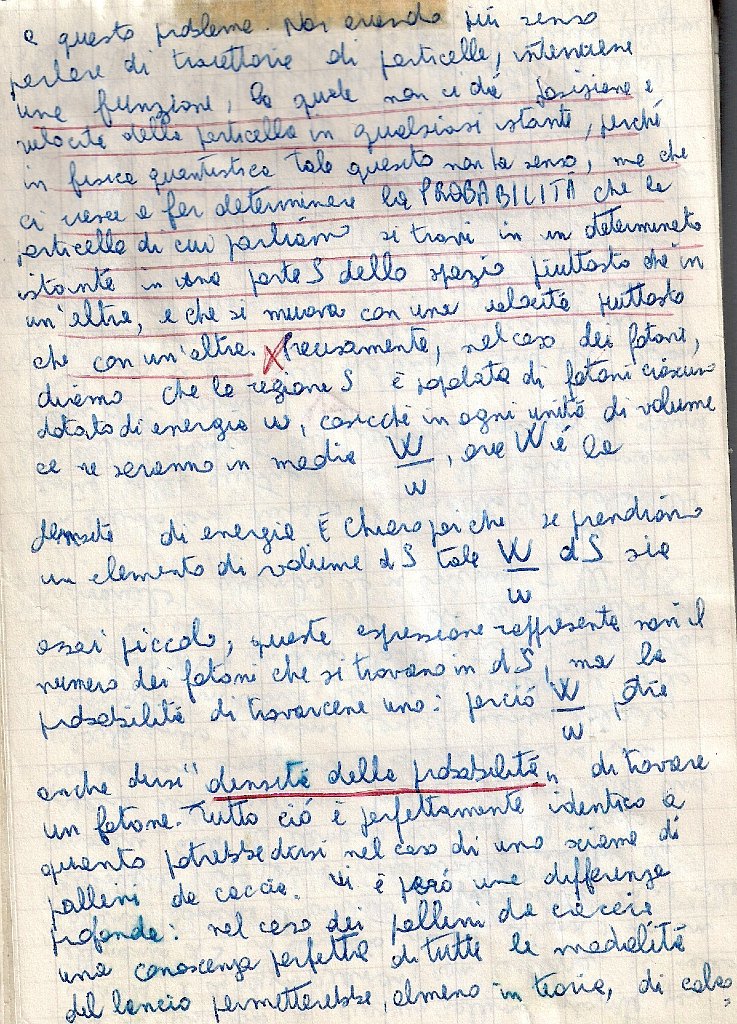 a questo problema. Non avendo più senso
parlare di traiettorie di particelle, interviene
una funzione, la quale non ci dà posizione e
velocità della particella in qualsiasi istante, perché
in fisica quantistica tale quesito non ha senso, ma che
ci riesce a far determinare la PROBABILITÁ che la
particella di cui parliamo si trovi in un determinato
istante in una parte S dello spazio piuttosto che in
un'altra, e che si muova con una velocità piuttosto
che con un'altra. Precisamente, nel caso dei fotoni,
diremo che la regione S è popolata di fotoni ciascuno
dotato di energia w, cosicché in ogni unità di volume
ce ne saranno in media W/w, ove W é la
densità di energia. È chiaro poi che se prendiamo
un elemento di volume dS tale W/w dS sia
assai piccolo, questa espressione rappresenta non il
numero dei fotoni che si trovano in dS, ma la
probabilità di trovarcene uno: perció W/w potrà
anche dirsi "densità della probabilità" di trovare
un fotone. Tutto ció è perfettamente identico a
quanto potrebbe dirsi nel caso di uno sciame di
pallini da caccia. Vi è peró una differenza
profonda: nel caso dei pallini da caccia
una conoscenza perfetta di tutte le modalità
del lancio permetterebbe, almeno in teoria, di calco=